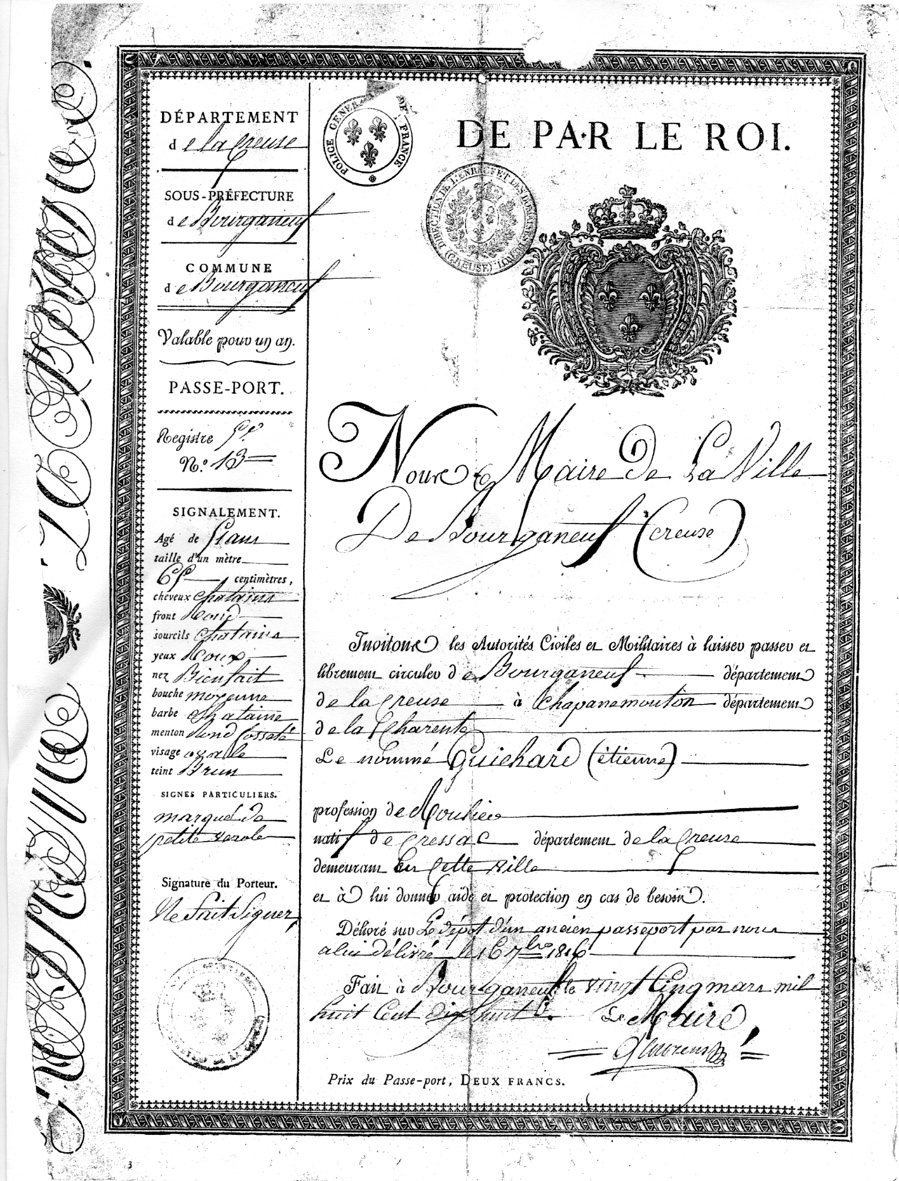 DÉPARTEMENT
de la Creuse
SOUS-PRÉFECTURE
de Bourganeuf
COMMUNE
de Bourganeuf
Valable pour un an.
PASSE-PORT.
Registre
N.º 13
SIGNALEMENT.
Agé de ans
taille d'un mètre
centimètres,
cheveux chatains
front Rond
sourcils chatains
yeux Roux
nez Bienfait
bouche moyenne
barbe chataine
menton Rond fosseté
visage ovale
teint Brun
SIGNES PARTICULIERS.
marqué de
petite verole
Signature du Porteur.
Ne Sait Signer
POLICE GENERALE DE FRANCE
DIRECTION DE L'ENREG.T ET DES DOMAINES
(CREUSE)
DE PAR LE ROI.
Nous Maire De La Ville
De Bourganeuf (Creuse)
Invitons les Autorités Civiles et Militaires à laisser passer et
librement circuler de Bourganeuf département
de la Creuse à Chapanemouton département
de la Charente
Le nommé Guichard (étienne)
profession de
natif de Cressac département de la Creuse
demeurant En Cette Ville
et à lui donner aide et protection en cas de besoin.
Délivré sur Le dépot d'un ancien passeport par nous
a lui délivré le 16 7bre 1816
Fait à Bourganeuf le vingt Cinq mars mil
huit Cent dix huit. Le Maire
Prix du Passe-port, DEUX FRANCS.
3